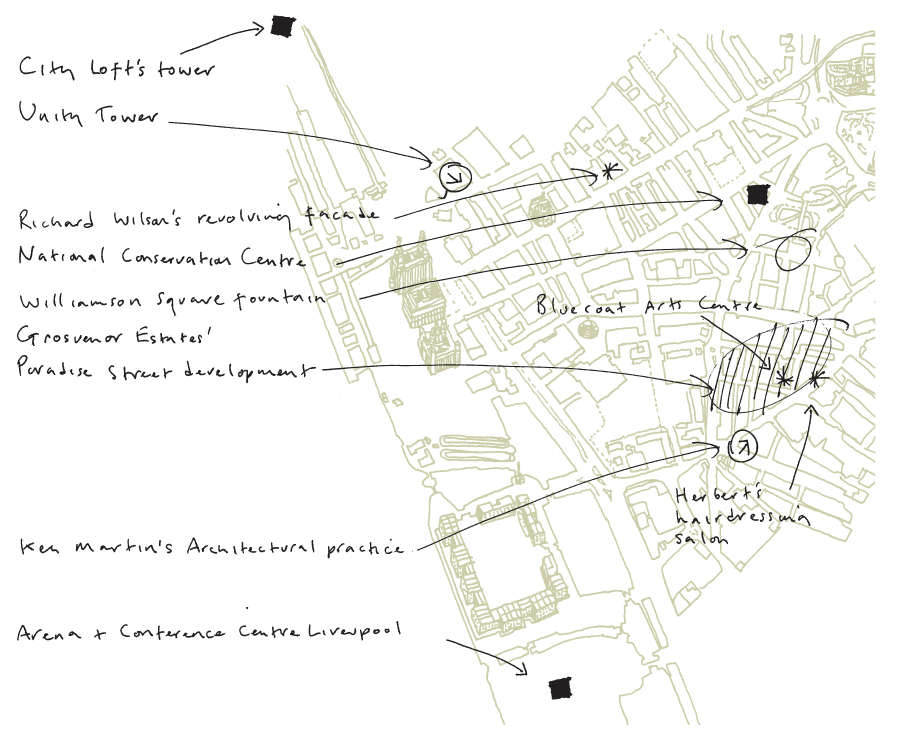 City Loft's tower
Unity Tower
Richard Wilson's revolving facade
National Conservation Centre
Williamson Square fountain
Bluecoat Arts Centre
Grosvenor Estates'
Paradise Street development
Herbert's
hairdressing
salon
Ken Martin's Architectural practice
Arena + Conference Centre Liverpool